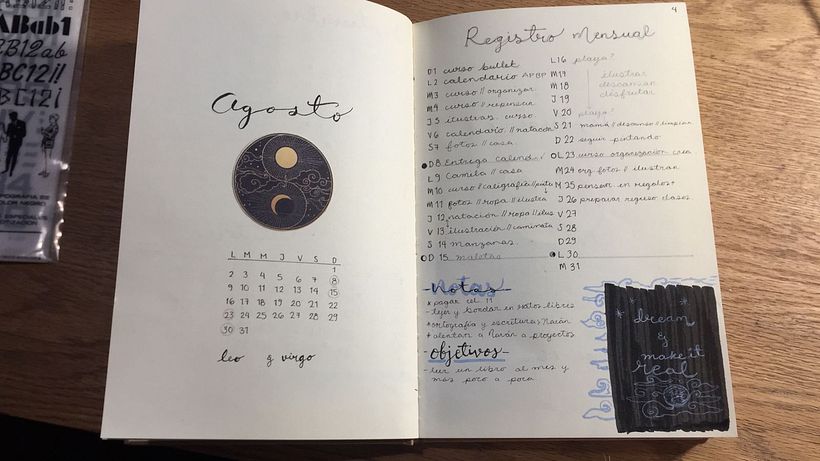 ABab1
BB12ab
BBC12!!
BC12!
COLOR NEGRO
ESPECIALES
Agosto
L M M J V S D
1
2 3 4 5 6 7 8
9 10 11 12 13 14 15
16 17 18 19 20 21 22
23 24 25 26 27 28 29
30 31
leo & virgo
4
Registro Mensual
D1 curso bullet
L2 calendario APBP
M3 curso // organizar
M4 curso // repensar
J5 ilustrar. curso
V6 calendario // natación
S7 fotos // casa
D8 Entrega calend.
L9 Camila // casa
M10 curso // caligrafía // pinta
M11 fotos // ropa // ilustra
J12 natación // ropa // ilus
V13 ilustración // caminata
S14 manzanas
D15 maletas
L16 playa?
M17 ilustrar
M18 descansar
J19 disfrutar
V20 playa?
S21 mamá // descanso // limpiar
D22 seguir pintando
L23 curso organización crea
M24 org fotos // ilustran
M25 pensar en regalos+
J26 preparar regreso clases
V27
S28
D29
L30
M31
notas
* pagar cel 11
- tejer y bordar en ratos libres
* ortografía y escritura
+ alentar a a proyectos
objetivos
- leer un libro al mes y
más poco a poco
dream
&
make it
real